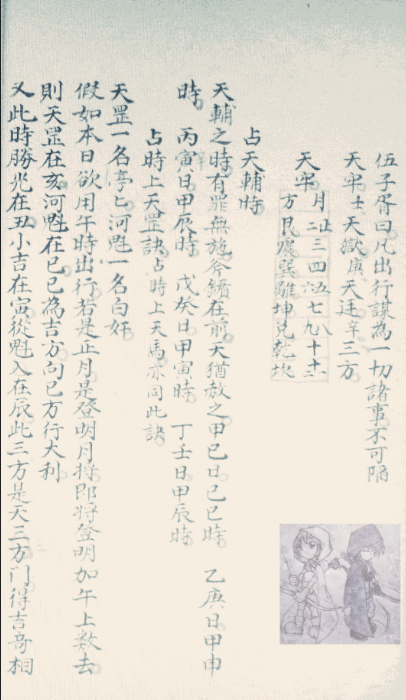 伍子胥曰凡出行謀為一切諸事不可陷
天牢壬天獄庚天廷辛三方
天牢
月正二三四五六七八九十十一十二
方艮震巽離坤兌乾坎
占天輔時
天輔之時有罪無施斧鑕在前天猶赦之甲己日己巳時 乙庚日甲申
時 丙寅日甲辰時 戊癸日甲寅時 丁壬日甲辰時
占時上天罡訣占時上天馬亦同此訣
天罡一名亭匕河魁一名白奸
假如本日欲用午時出行若是正月是登明月將即將登明加午上数去
則天罡在亥河魁在巳巳為吉方向巳方行大利
又此時勝光在丑小吉在寅從魁入在辰此三方是天三方门得吉奇相